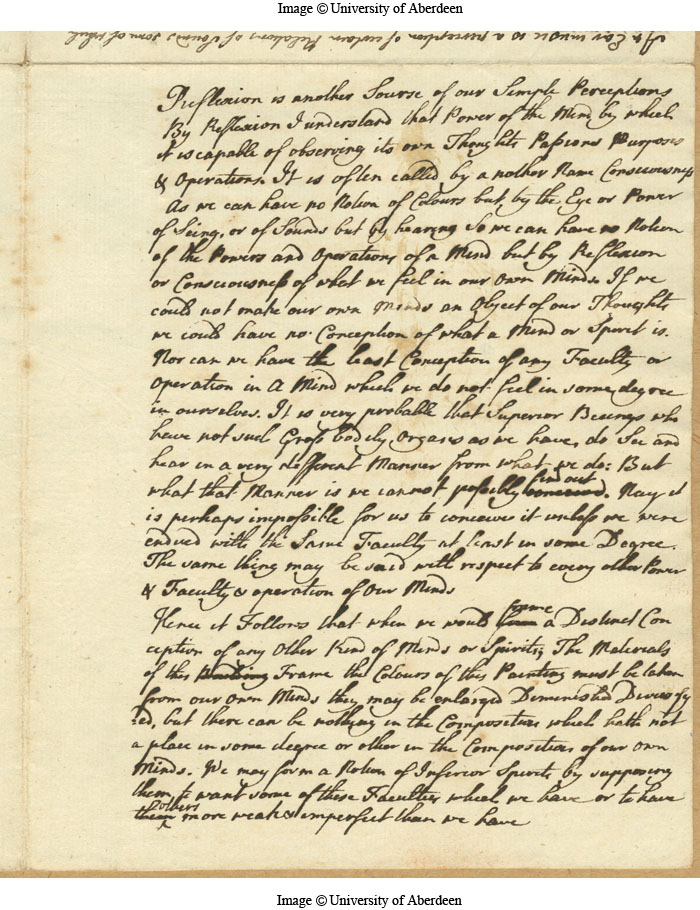 Image © University of Aberdeen
An Ear in music is a perception of certain Relations of Sounds some of which
Reflexion is another Sourse of our Simple Perceptions
By Reflexion I understand that Power of the Mind by which
it is capable of observing its own Thoughts Passions Purposes
& Operations. It is often called by a nother Name Consciousness
As we can have no Notion of Colours but by the Eye or Power
of Seing, or of Sounds but by hearing So we can have no Notion
of the Powers and Operations of a Mind but by Reflexion
or Consciousness of what we feel in our own Minds. If we
could not make our own Minds an Object of our Thoughts
we could have no Conception of what a Mind or Spirit is.
Nor can we have the least Conception of any Faculty or
Operation in A Mind which we do not feel in some degree
in ourselves. It is very probable that Superior Beeings who
have not such Gross bodily Organs as we have, do See and
hear in a very different Manner from what we do: But
what that Manner is we cannot possibly find out. Nay it
is perhaps impossible for us to conceive it unless we were
endued with the Same Faculty at least in some Degree.
The same thing may be said with respect to every other Power
& Faculty & operation of Our Minds
Hence it Follows that when we would forme a Distinct Con
ception of any Other Kind of Minds or Spirits, The Materials
of this Frame the Colours of this Painting must be taken
from our own Minds they may be enlarged Diminished Diversify
ed, but there can be nothing in the Composition which hath not
a place in some degree or other in the Composition of our own
Minds. We may form a Notion of Inferior Spirits by supposing
them to want some of these Faculties which we have or to have
others more weak & imperfect than we have
Image © University of Aberdeen